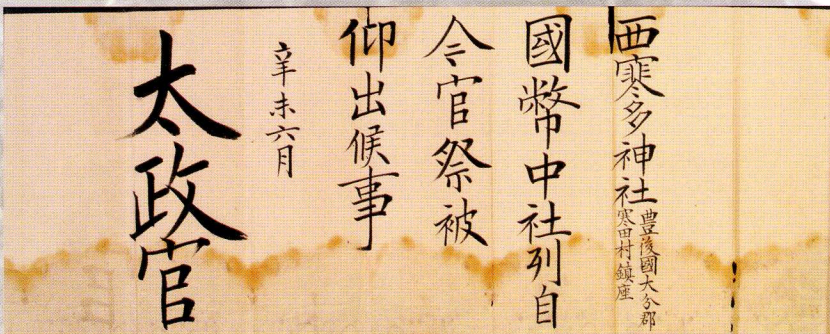 西寒多神社
豊後國大分郡
寒田村鎮座
國幣中社列自
今官祭被
仰出候事
辛未六月
太政官